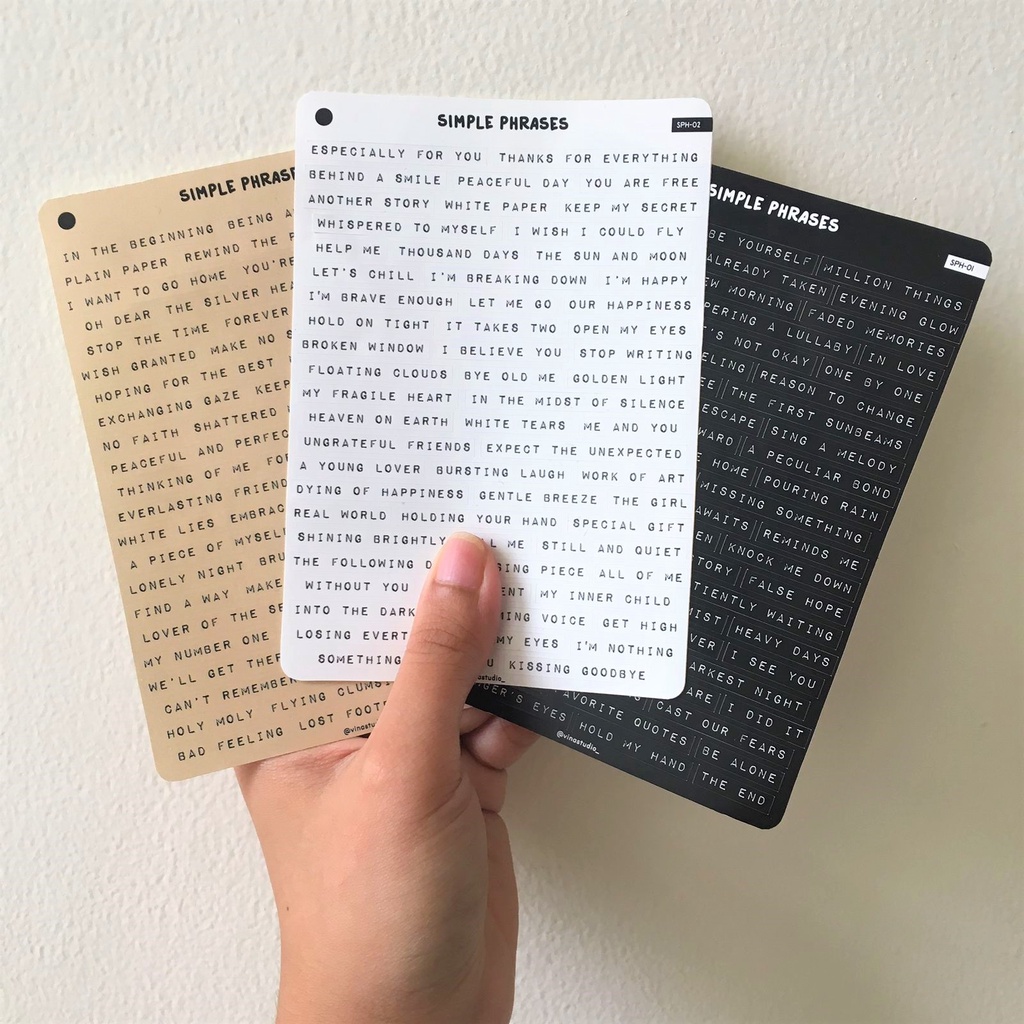 SIMPLE PHRASE
IN THE BEGINNING BEING
PLAIN PAPER REWIND THE
I WANT TO GO HOME YOU'RE
OH DEAR THE SILVER
STOP THE TIME FOREVER
WISH GRANTED MAKE NO
HOPING FOR THE BEST
EXCHANGING GAZE KEEP
NO FAITH SHATTERED
PEACEFUL AND
THINKING OF ME FOR
EVERLASTING FRIEND
WHITE LIES
A PIECE OF
LONELY NIGHT
FIND A WAY MAKE
LOVER OF THE
MY NUMBER ONE
WE'LL GET
CAN'T REMEMBER
HOLY MOLY FLYING
BAD FEELING LOST
SIMPLE PHRASES
SPH-02
ESPECIALLY FOR YOU THANKS FOR EVERYTHING
BEHIND A SMILE PEACEFUL DAY YOU ARE FREE
ANOTHER STORY WHITE PAPER KEEP MY SECRET
WHISPERED TO MYSELF I WISH I COULD FLY
HELP ME THOUSAND DAYS THE SUN AND MOON
LET'S CHILL I'M BREAKING DOWN I'M HAPPY
I'M BRAVE ENOUGH LET ME GO OUR HAPPINESS
HOLD ON TIGHT IT TAKES TWO OPEN MY EYES
BROKEN WINDOW I BELIEVE YOU STOP WRITING
FLOATING CLOUDS BYE OLD ME GOLDEN LIGHT
MY FRAGILE HEART IN THE MIDST OF SILENCE
HEAVEN ON EARTH WHITE TEARS ME AND YOU
UNGRATEFUL FRIENDS EXPECT THE UNEXPECTED
A YOUNG LOVER BURSTING LAUGH WORK OF ART
DYING OF HAPPINESS GENTLE BREEZE THE GIRL
REAL WORLD HOLDING YOUR HAND SPECIAL GIFT
SHINING BRIGHTLY ME STILL AND QUIET
THE FOLLOWING PIECE ALL OF ME
WITHOUT YOU MY INNER CHILD
INTO THE DARK VOICE GET HIGH
LOSING MY EYES I'M NOTHING
SOMETHING KISSING GOODBYE
SIMPLE PHRASES
SPH-01
BE YOURSELF MILLION THINGS
ALREADY TAKEN EVENING GLOW
MORNING FADED MEMORIES
A LULLABY IN LOVE
NOT OKAY ONE BY ONE
REASON TO CHANGE
THE FIRST SUNBEAMS
ESCAPE SING A MELODY
A PECULIAR BOND
HOME POURING RAIN
MISSING SOMETHING
AWAITS REMINDS ME
KNOCK ME DOWN
FALSE HOPE
WAITING
HEAVY DAYS
I SEE YOU
NIGHT
ARE I DID IT
CAST OUR FEARS
FAVORITE QUOTES BE ALONE
EYES HOLD MY HAND THE END
@vinastudio_